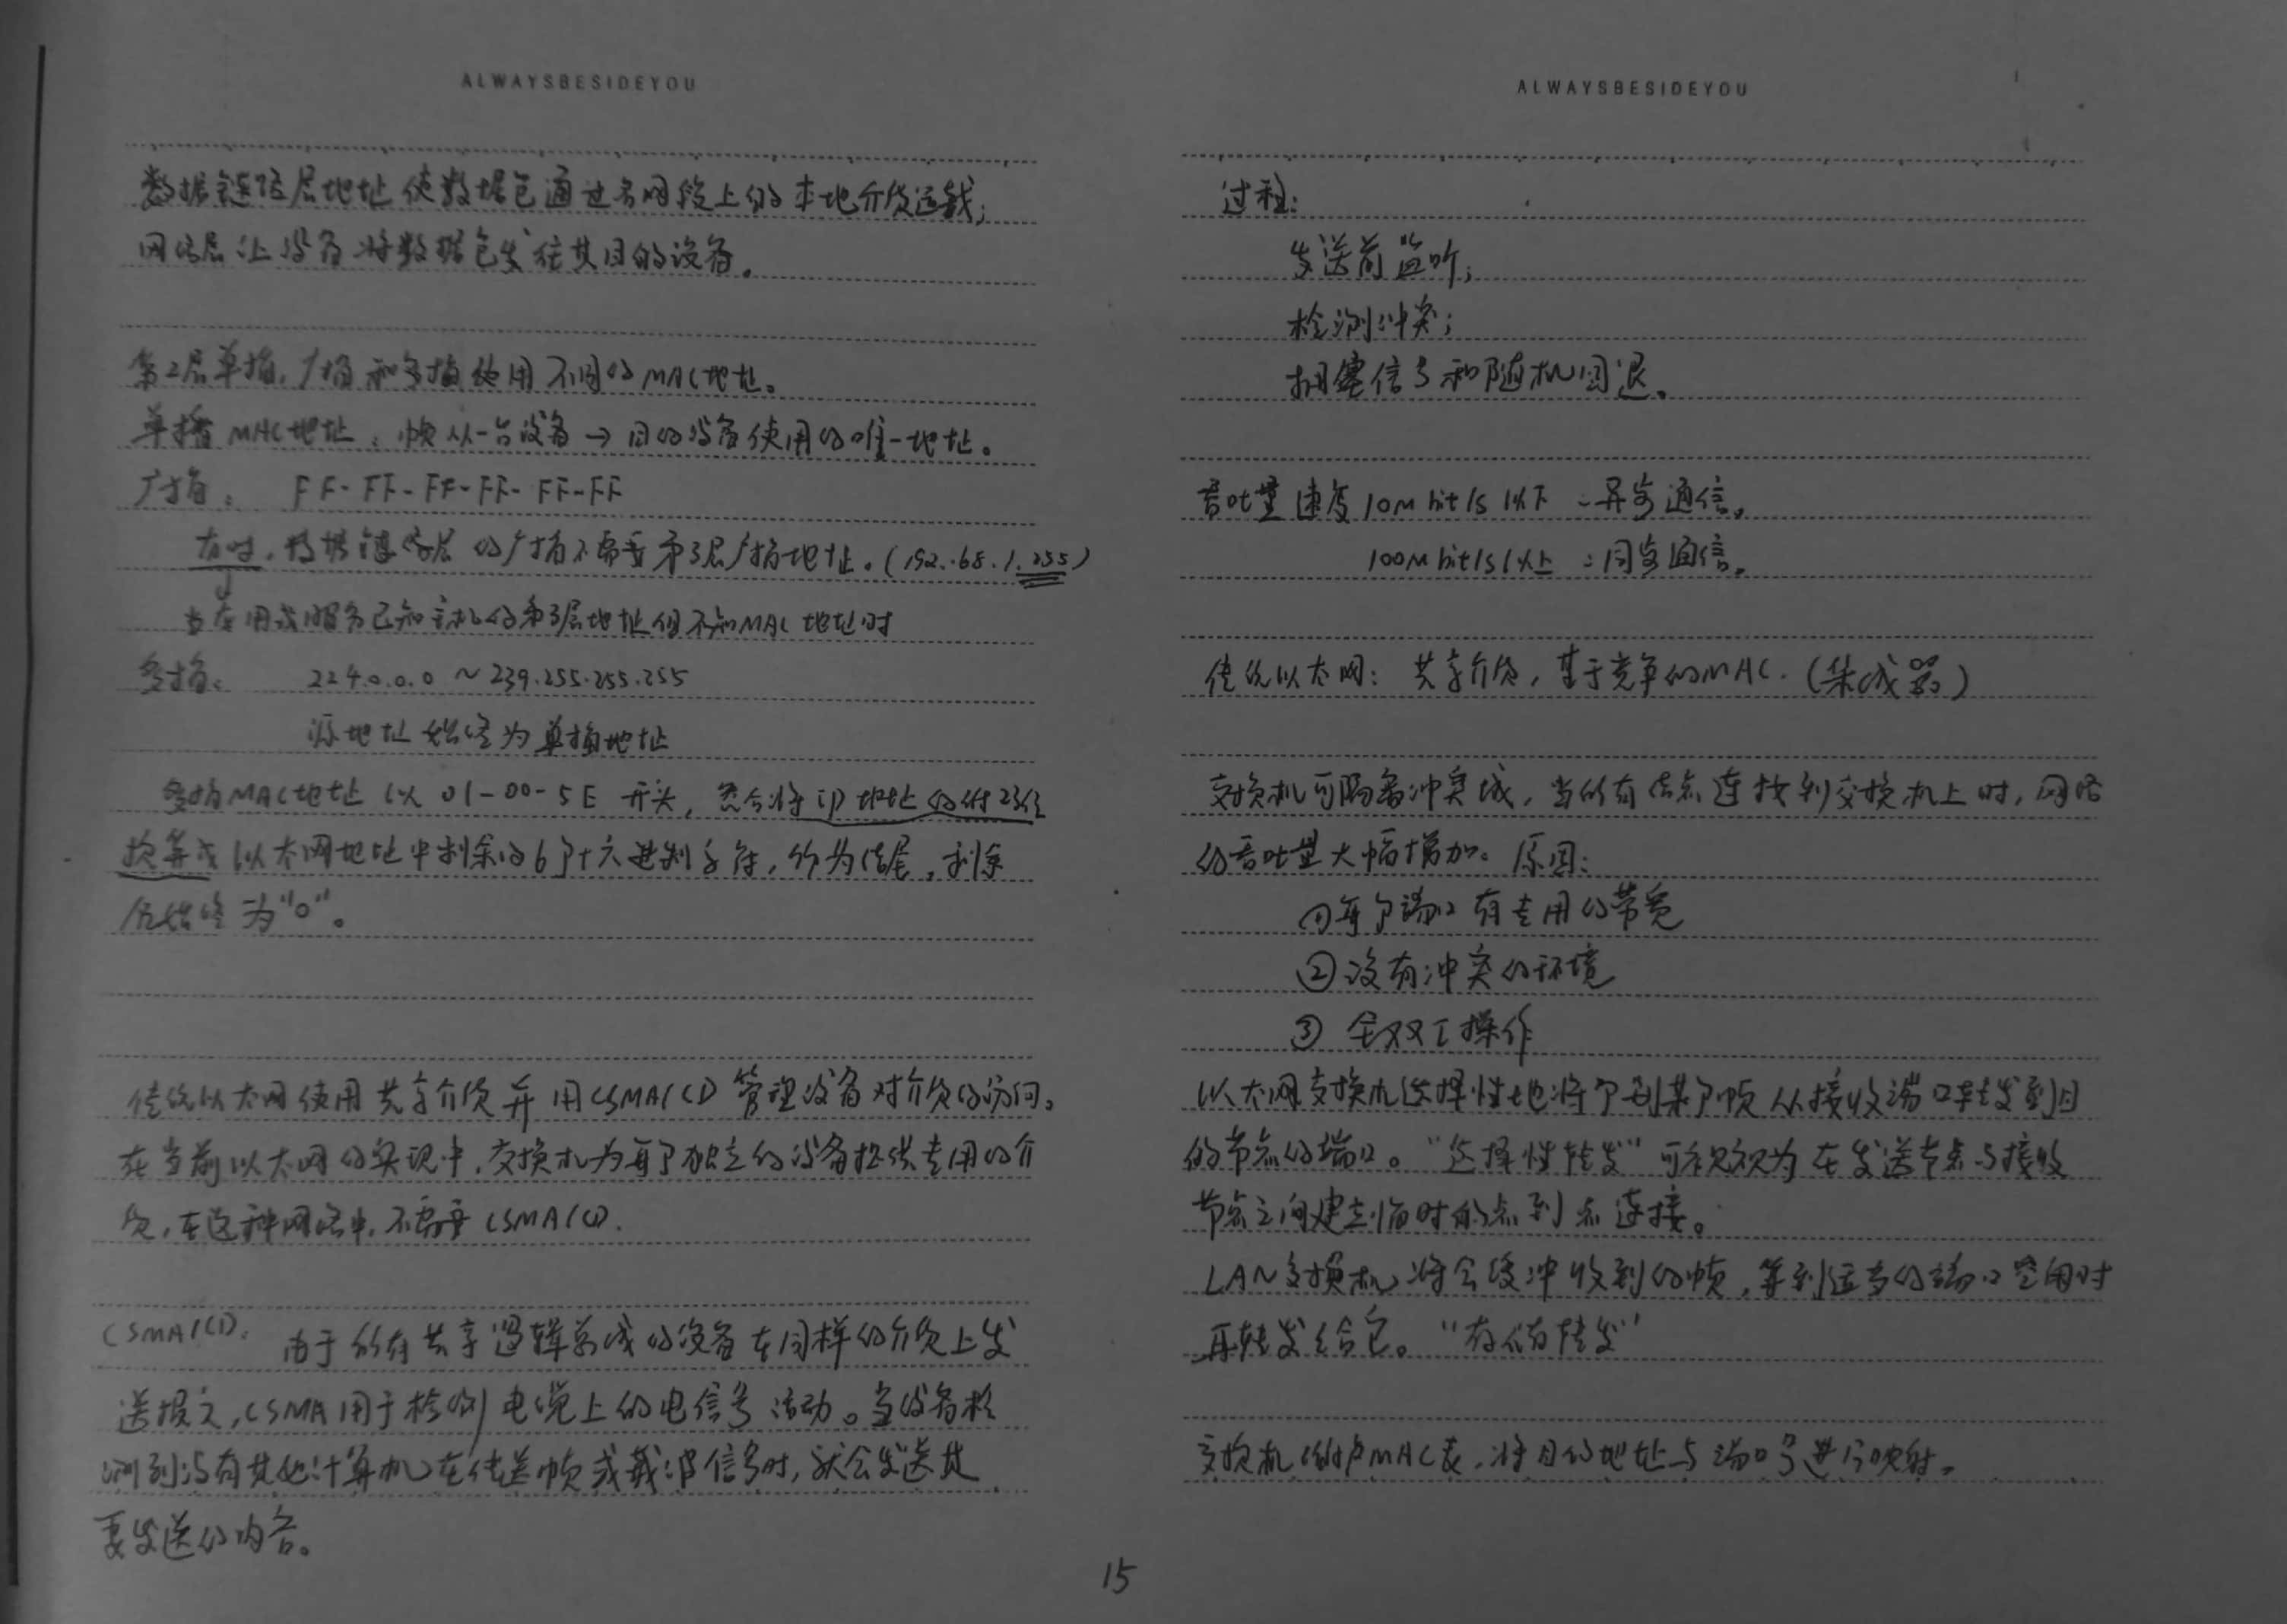 ALWAYSBESIDEYOU
数据链路层地址使数据包通过各网段上的本地介质运载;
网络层让设备将数据包发往其目的设备。
第2层单播,广播和多播使用不同的MAC地址。
单播MAC地址:帧从一台设备→目的设备使用的唯一地址。
广播: FF-FF-FF-FF-FF-FF
有时,数据链路层的广播不需要第3层广播地址。(192.168.1.255)
当应用或服务已知主机的第3层地址但不知MAC地址时
多播: 224.0.0.0~239.255.255.255
源地址始终为单播地址
多播MAC地址以01-00-5E开头,然后将IP地址的低23位
换算成以太网地址中剩余的6个十六进制字符,作为结尾,剩余
位始终为“0”。
传统以太网使用共享介质并用CSMA/CD管理设备对介质的访问。
在当前以太网的实现中,交换机为每个独立的设备提供专用的介
质,在这种网络中,不需要CSMA/CD.
CSMA/CD: 由于所有共享逻辑总线的设备在同样的介质上发
送报文,CSMA用于检测电缆上的电信号活动。当设备检
测到没有其他计算机在传送帧或载波信号时,就会发送其
要发送的内容。
ALWAYSBESIDEYOU
过程:
发送前监听;
检测冲突;
拥塞信号和随机回退。
吞吐量速度10Mbit/s以下:异步通信。
100Mbit/s以上:同步通信。
传统以太网:共享介质,基于竞争的MAC.(集成器)
交换机可隔离冲突域,当所有结点连接到交换机上时,网络
的吞吐量大幅增加。原因:
①每个端口有专用的带宽
②没有冲突的环境
③全双工操作
以太网交换机选择性地将个别某个帧从接收端口转发到目
的节点的端口。“选择性转发”可视为在发送节点与接收
节点之间建立临时的点到点连接。
LAN交换机将会缓冲收到的帧,等到适当的端口空闲时
再转发给它。“存储转发”
交换机维护MAC表,将目的地址与端口号进行映射。
15